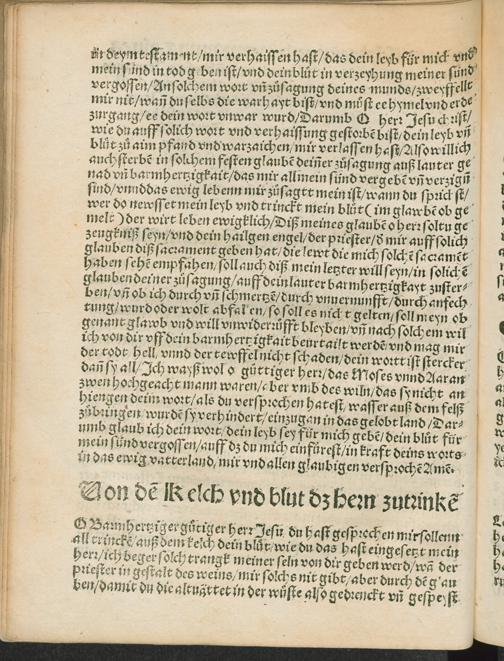 in deym testament/mir verhaissen hast/das dein leyb für mich vnd
mein sünd in tod geben ist/vnd dein blüt in verzeyhung meiner sünd
vergossen/An solchem wort vñ züsagung deines munds/zweyffelt
mir nit/wañ du selbs die warhayt bist/vnd müst ee hymel vnd erde
zurgang/ee dein wort vnwar wurd/Darumb O herr Jesu christ/
wie du auff solich wort vnd verhaissung gestorbẽ bist/dein leyb vñ
blüt zü aim pfand vnd warzaichen/mir verlassen hast/Also will ich
auch sterbẽ in solchem festen glaubẽ deiner züsagung auß lauter ge
nad vñ barmhertzigkait/das mir all mein sünd vergebẽ vñ verzigñ
sind/vnnd das ewig lebenn mir züsagtt mein ist/wann du sprichst/
wer do newsset mein leyb vnd trinckt mein blüt (im glawbẽ ob ge
melt) der wirt leben ewigklich/Diß meines glaubẽ o herr solt u ge
zeugkniß seyn/vnd dein hailgen engel/der priester/d mir auff solich
glauben diß sacrament geben hat/die lewt die mich solchẽ sacramẽt
haben sehẽ empfahen/soll auch diß mein letzter will seyn/in solichẽ
glauben deiner züsagung/auff dein lauter barmhertzigkayt zuster-
ben/vñ ob ich durch vñ schmertzẽ/durch vnuernunfft/durch anfech
tung/wurd oder wolt abfalen/so soll es nicht gelten/soll meyn ob
genant glawb vnd will vnwiderüfft bleyben/vñ nach solchem wil
ich von dir vff dein barmhertzigkait beurtailt werdẽ vnd mag mir
der todt hell, vnnd der tewffel nicht schaden/dein wort ist stercker
dañ sy all/Ich wayß wol o güttiger herr/das Moses vnnd Aaran
zwen hochgeacht mann waren/aber vmb des wiln/das sy nicht an
hiengen deim wort/als du versprochen hatest/wasser auß dem felß
zübringen/wurdẽ sy verhindert/einzugan in das gelobt land/Dar-
umb glaub ich dein wort/dein leyb sey für mich gebẽ/dein blüt für
mein sünd vergossen/auff dz du mich einfürest/in kraft deins worts
in das ewig vatterland, mir vnd allen glaubigen versprochẽ Amẽ.
Von dẽ Kelch vnd blut dz hern zutrinkẽ
O Barmhertziger gütiger herr Jesu du hast gesprochen mir sollenn
all trinckẽ auß dem kelch dein blüt/wie du das hast eingesetzt mein
herr/ich beger solch trangk meiner seln von dir geben werd/wañ der
priester in gestalt des weins/mir solchs nit gibt/aber durch dẽ g'au
ben/damit du die altuätter in der wüste also gedrenckt vñ gespeyst